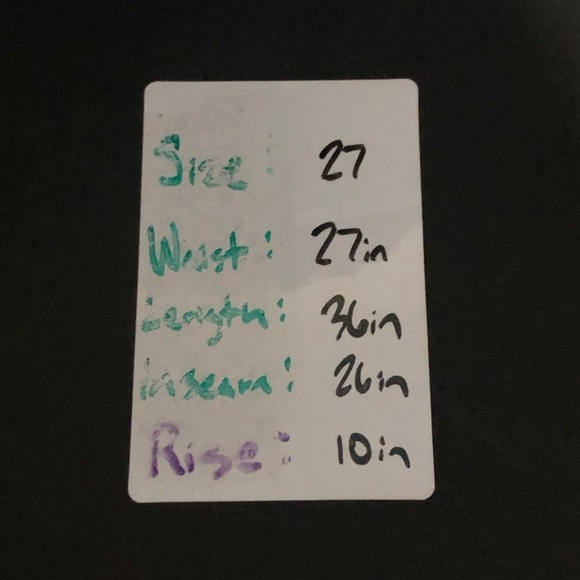 Size: 27
Waist: 27in
Length: 36in
Inseam: 26in
Rise: 10in